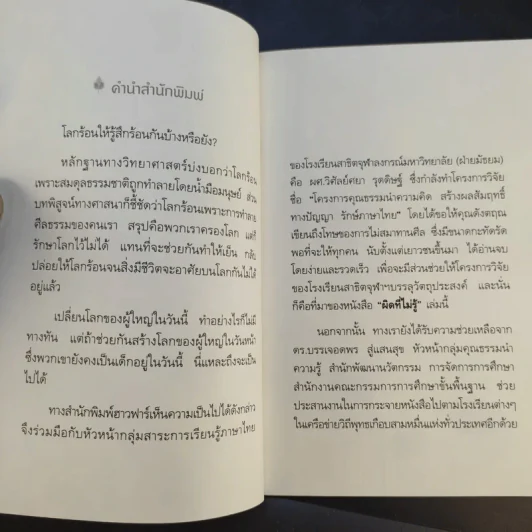 คำนำสำนักพิมพ์
โลกร้อนให้รู้สึกร้อนกันบ้างหรือยัง?
หลักฐานทางวิทยาศาสตร์บ่งบอกว่าโลกร้อน
เพราะสมดุลธรรมชาติถูกทำลายโดยน้ำมือมนุษย์ ส่วน
บทพิสูจน์ทางศาสนาก็ชี้ชัดว่าโลกร้อนเพราะการทำลาย
ศีลธรรมของคนเรา สรุปคือพวกเราครองโลก แต่
รักษาโลกไว้ไม่ได้ แทนที่จะช่วยกันทำให้เย็น กลับ
ปล่อยให้โลกร้อนจนสิ่งมีชีวิตจะอาศัยบนโลกกันไม่ได้
อยู่แล้ว
เปลี่ยนโลกของผู้ใหญ่ในวันนี้ ทำอย่างไรก็ไม่มี
ทางทัน แต่ถ้าช่วยกันสร้างโลกของผู้ใหญ่ในวันหน้า
ซึ่งพวกเขายังคงเป็นเด็กอยู่ในวันนี้ นี่แหละถึงจะเป็น
ไปได้
ทางสำนักพิมพ์ฮาวฟาร์เห็นความเป็นไปได้ดังกล่าว
จึงร่วมมือกับหัวหน้ากลุ่มสาระการเรียนรู้ภาษาไทย
ของโรงเรียนสาธิตจุฬาลงกรณ์มหาวิทยาลัย (ฝ่ายมัธยม)
คือ ผศ.วิศัลย์ศยา รุดดิษฐ์ ซึ่งกำลังทำโครงการวิจัย
ชื่อ “โครงการคุณธรรมนำความคิด สร้างผลสัมฤทธิ์
ทางปัญญา รักษ์ภาษาไทย” โดยได้ขอให้คุณดังตฤณ
เขียนถึงโทษของการไม่สมาทานศีล ซึ่งมีขนาดกะทัดรัด
พอที่จะให้ทุกคน นับตั้งแต่เยาวชนขึ้นมา ได้อ่านจบ
โดยง่ายและรวดเร็ว เพื่อจะมีส่วนช่วยให้โครงการวิจัย
ของโรงเรียนสาธิตจุฬาฯบรรลุวัตถุประสงค์ และนั่น
ก็คือที่มาของหนังสือ “ผิดที่ไม่รู้” เล่มนี้
นอกจากนั้น ทางเรายังได้รับความช่วยเหลือจาก
ดร.บรรเจอดพร สู่แสนสุข หัวหน้ากลุ่มคุณธรรมนำ
ความรู้ สำนักพัฒนานวัตกรรม การจัดการการศึกษา
สำนักงานคณะกรรมการการศึกษาขั้นพื้นฐาน ช่วย
ประสานงานในการกระจายหนังสือไปตามโรงเรียนต่างๆ
ในเครือข่ายวิถีพุทธเกือบสามหมื่นแห่งทั่วประเทศอีกด้วย